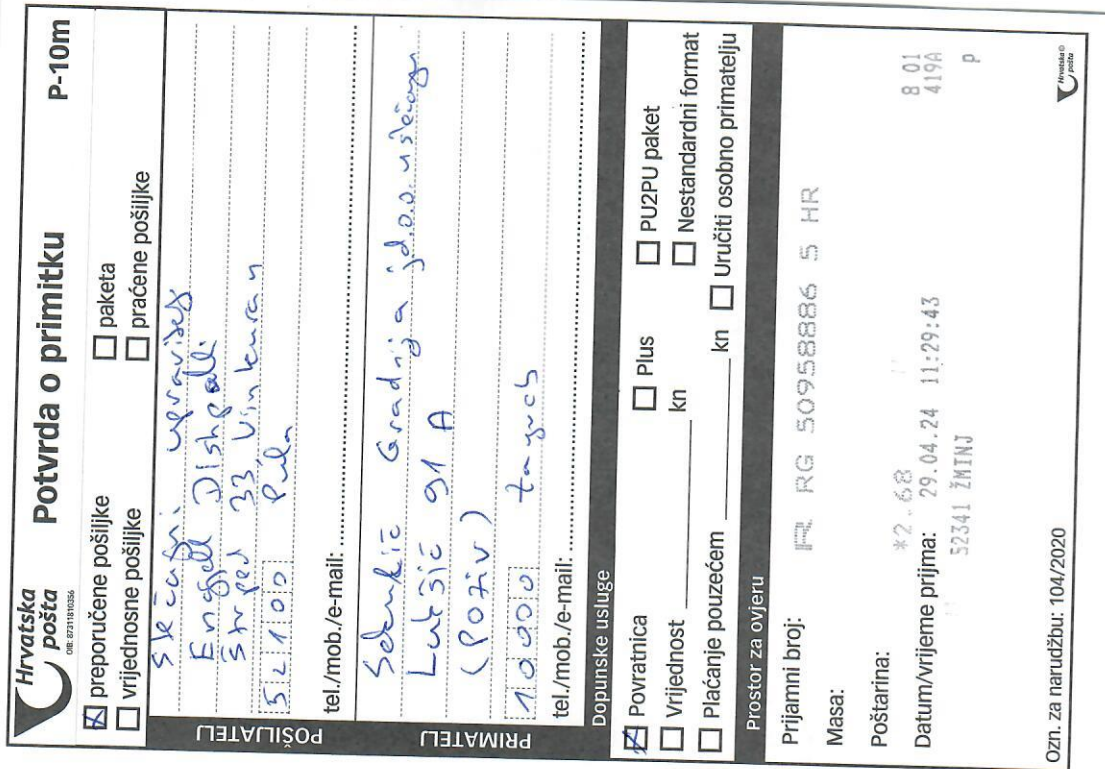 Hrvatska pošta
OIB: 87311810356
Potvrda o primitku
P-10m
☒ preporučene pošiljke ☐ paketa
☐ vrijednosne pošiljke ☐ praćene pošiljke
POŠILJATELJ
Stečajni upravitelj
Engjell Dishpalli
33 Vinkuran
52100 Pula
tel./mob./e-mail:
PRIMATELJ
Gradnja j.d.o.o. u stečaju
91 A
(Poziv)
10000 Zagreb
tel./mob./e-mail:
Dopunske usluge
☒ Povratnica ☐ Plus ☐ PU2PU paket
☐ Vrijednost kn ☐ Nestandardni format
☐ Plaćanje pouzećem kn ☐ Uručiti osobno primatelju
Prostor za ovjeru
Prijamni broj: R RG 50958886 5 HR
Masa:
Poštarina: *2.68 8 01
Datum/vrijeme prijma: 29.04.24 11:29:43 419A
52341 ŽMINJ p
Ozn. za narudžbu: 104/2020
Hrvatska pošta